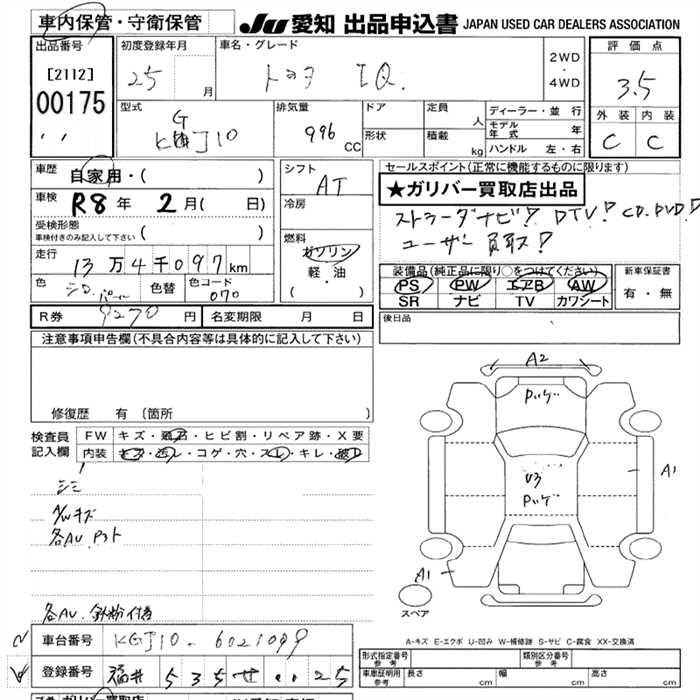 車内保管・守衛保管
JU 愛知 出品申込書 JAPAN USED CAR DEALERS ASSOCIATION
出品番号
[2112]
00175
初度登録年月
25 月
車名・グレード
トヨタ IQ.
2WD
・
4WD
評価点
3.5
外装 内装
C C
型式
G
KGJ10
排気量
996 CC
ドア
形状
定員 人
積載 kg
ディーラー・並行
モデル年式 年
ハンドル 左・右
車歴
自家用・( )
車検
R8年 2月( 日)
受検形態
車検付きのみ記入して下さい ( )
走行
13万4千097km
色
シロパール
色替
色コード
070
シフト
AT
冷房
燃料
ガソリン
軽・油
( )
セールスポイント(正常に機能するものに限ります)
★ガリバー買取店出品
ストラーダナビ! DTV! CD.DVD!
ユーザー買取!
装備品(純正品に限り○をつけてください)
PS PW エアB AW
SR ナビ TV カワシート
新車保証書
有・無
R券 9270 円
名変期限 月 日
後日品
注意事項申告欄(不具合内容等は具体的に記入して下さい)
修復歴 有(箇所 )
検査員
記入欄
FW キズ・飛石・ヒビ割・リペア跡・X要
内装 キズ・汚レ・コゲ・穴・スレ・キレ・破レ
シミ
A/Wキズ
各AU.Pョト
各AU.鉄粉付着
A2
Pッゲ
U3
Pッゲ
A1
A1
スペア
A-キズ E-エクボ U-凹み W-補修跡 S-サビ C-腐食 XX-交換済
車台番号 KGJ10-6021099
登録番号 福井 535 せ ・・25
形式指定番号
参考
類別区分番号
参考
車庫証明用
参考
長さ 幅 高さ
cm cm cm